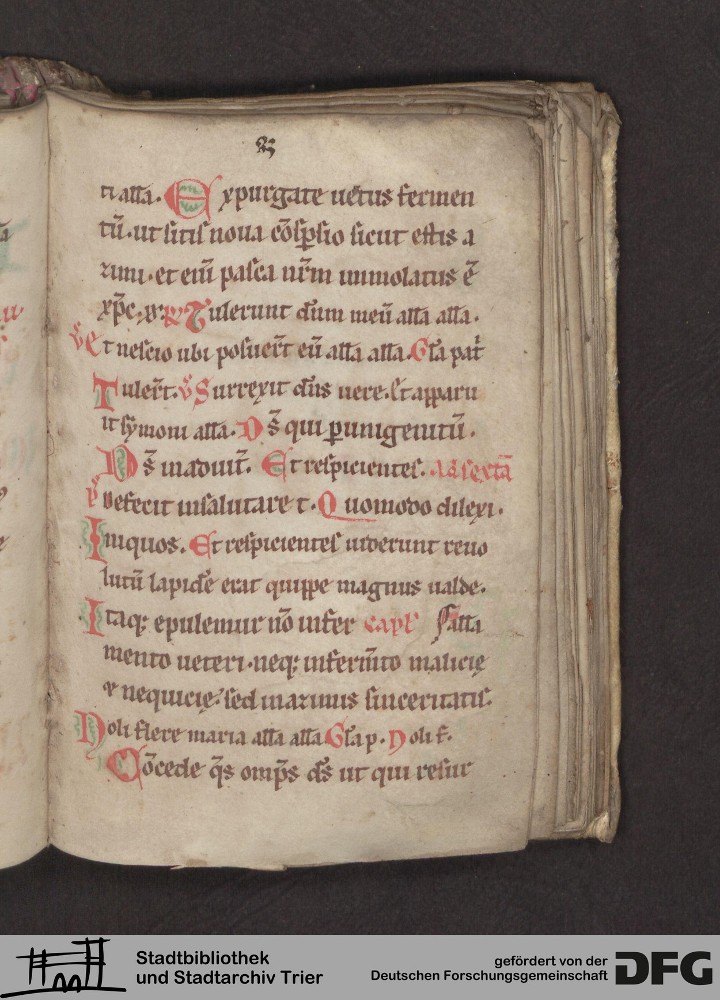 ti alła. Expurgate uet᷑us fermen
tū. ut sitis noua cōsp̄sio sicut estis a
zimi. et eni pasca nr̄m immolatus ē
xp̄c. Tulerunt dn̄m meū alła alła.
Et nescio ubi posuer̄t eū alła alła. Gła pat
Tuler̄t. Surrexit dn̄s uere. Et apparu
it symoni alła. Ds̄ qui p̱ unigenitū.
Ds̄ in adiut̄. Et respicientes. Ad sextā
Defecit in salutare t. Quomodo dilexi.
Iniquos. Et respicientes uiderunt reuo
lutū lapidē erat quippe magnus ualde.
Itaq; epulemur nō in fer capł
mento ueteri. neq; in ferm̄to malicię
& nequicię. sed in azimis sinceritatis.
Noli flere maria alła alła Gła p. Noli f.
Cōcede qs̄ omp̄s ds̄ ut qui resur
Stadtbibliothek
und Stadtarchiv Trier
gefördert von der
Deutschen Forschungsgemeinschaft
DFG